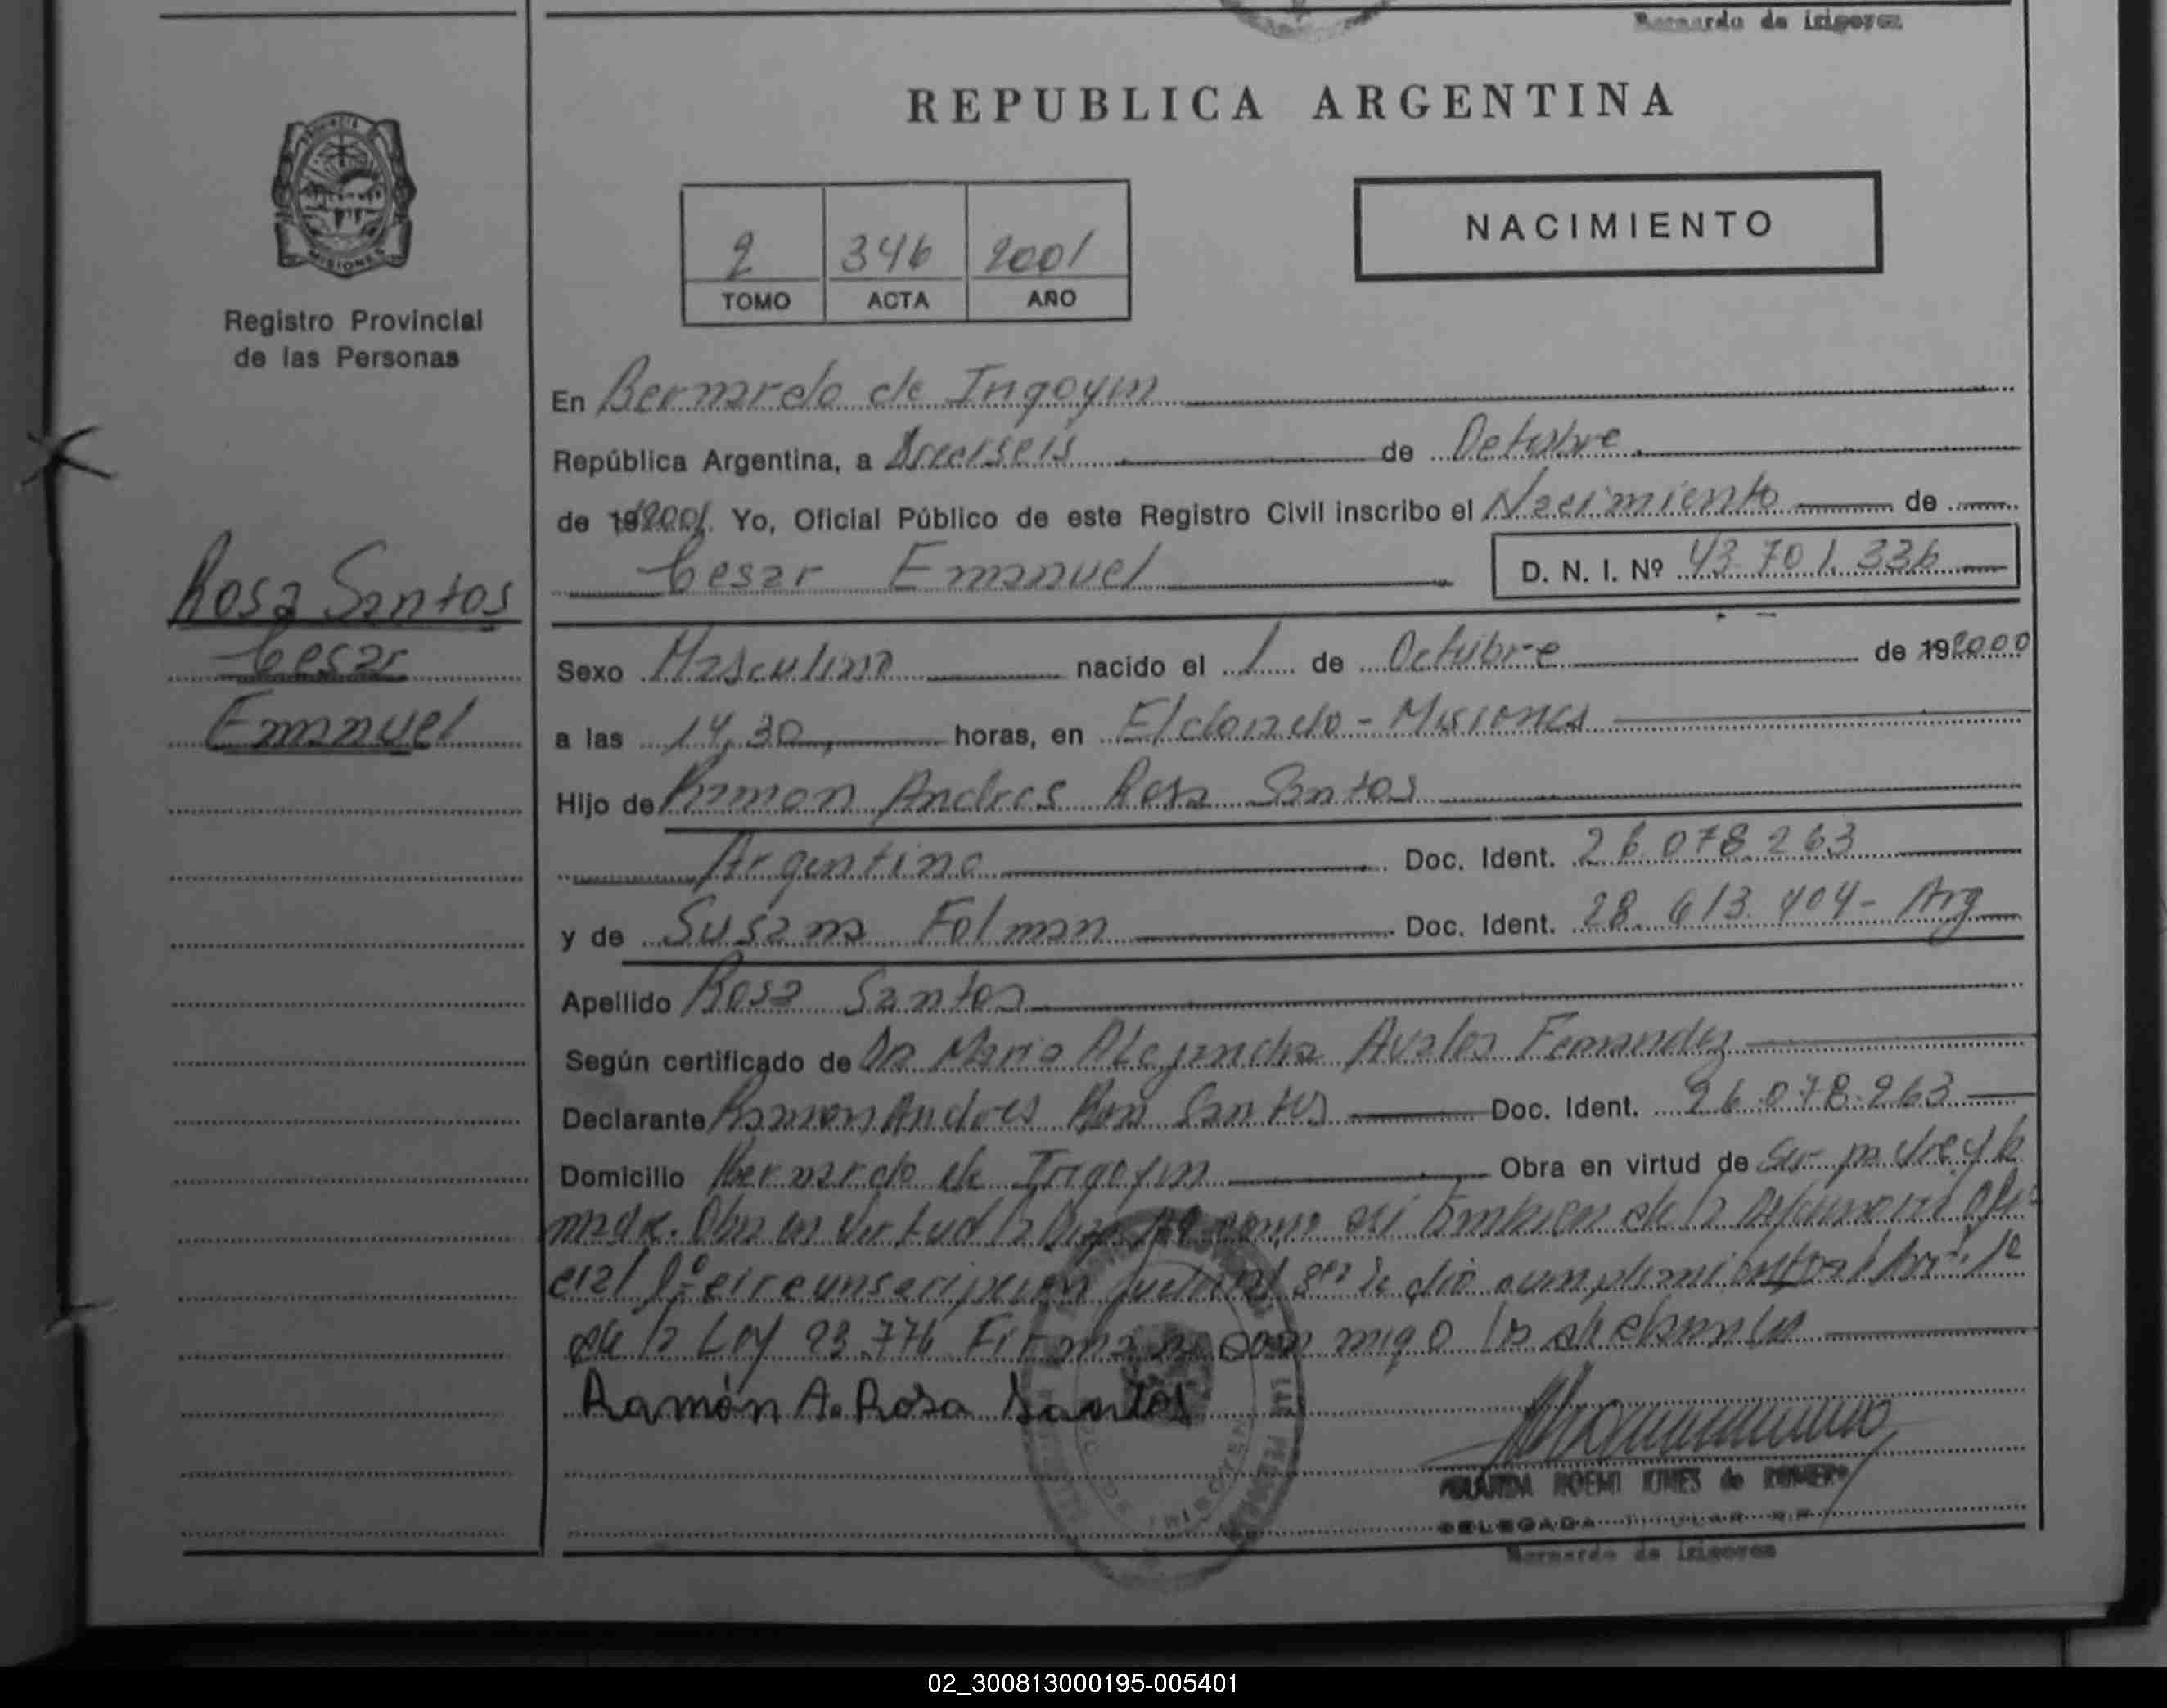 Bernardo de Irigoyen
REPUBLICA ARGENTINA
PROVINCIA
MISIONES
Registro Provincial
de las Personas
2 346 2001
TOMO ACTA AÑO
NACIMIENTO
En Bernardo de Irigoyen
República Argentina, a Dieciseis de Octubre
de 192001. Yo, Oficial Público de este Registro Civil inscribo el Nacimiento de
Cesar Emanuel D. N. I. Nº 43.701.336
Rosa Santos
Cesar
Emanuel
Sexo Masculino nacido el 1 de Octubre de 192000
a las 14,30 horas, en Eldorado - Misiones
Hijo de Ramon Andres Rosa Santos
Argentino Doc. Ident. 26.078.263
y de Susana Folman Doc. Ident. 28.613.404 - Arg
Apellido Rosa Santos
Según certificado de Dra Maria Alejandra Avalos Fernandez
Declarante Ramon Andres Rosa Santos Doc. Ident. 26.078.263
Domicilio Bernardo de Irigoyen Obra en virtud de ser padre y la
madre. Obra en virtud la asi tambien de la Defensoria Ofi
cial 1º circunscripcion Judicial se le dio cumplimiento al
de la Ley 23.776 Firma conmigo los declarantes
Ramón A. Rosa Santos
NOEMI KUNES de ROMERO
DELEGADA TITULAR R.P.
Bernardo de Irigoyen
02_300813000195-005401